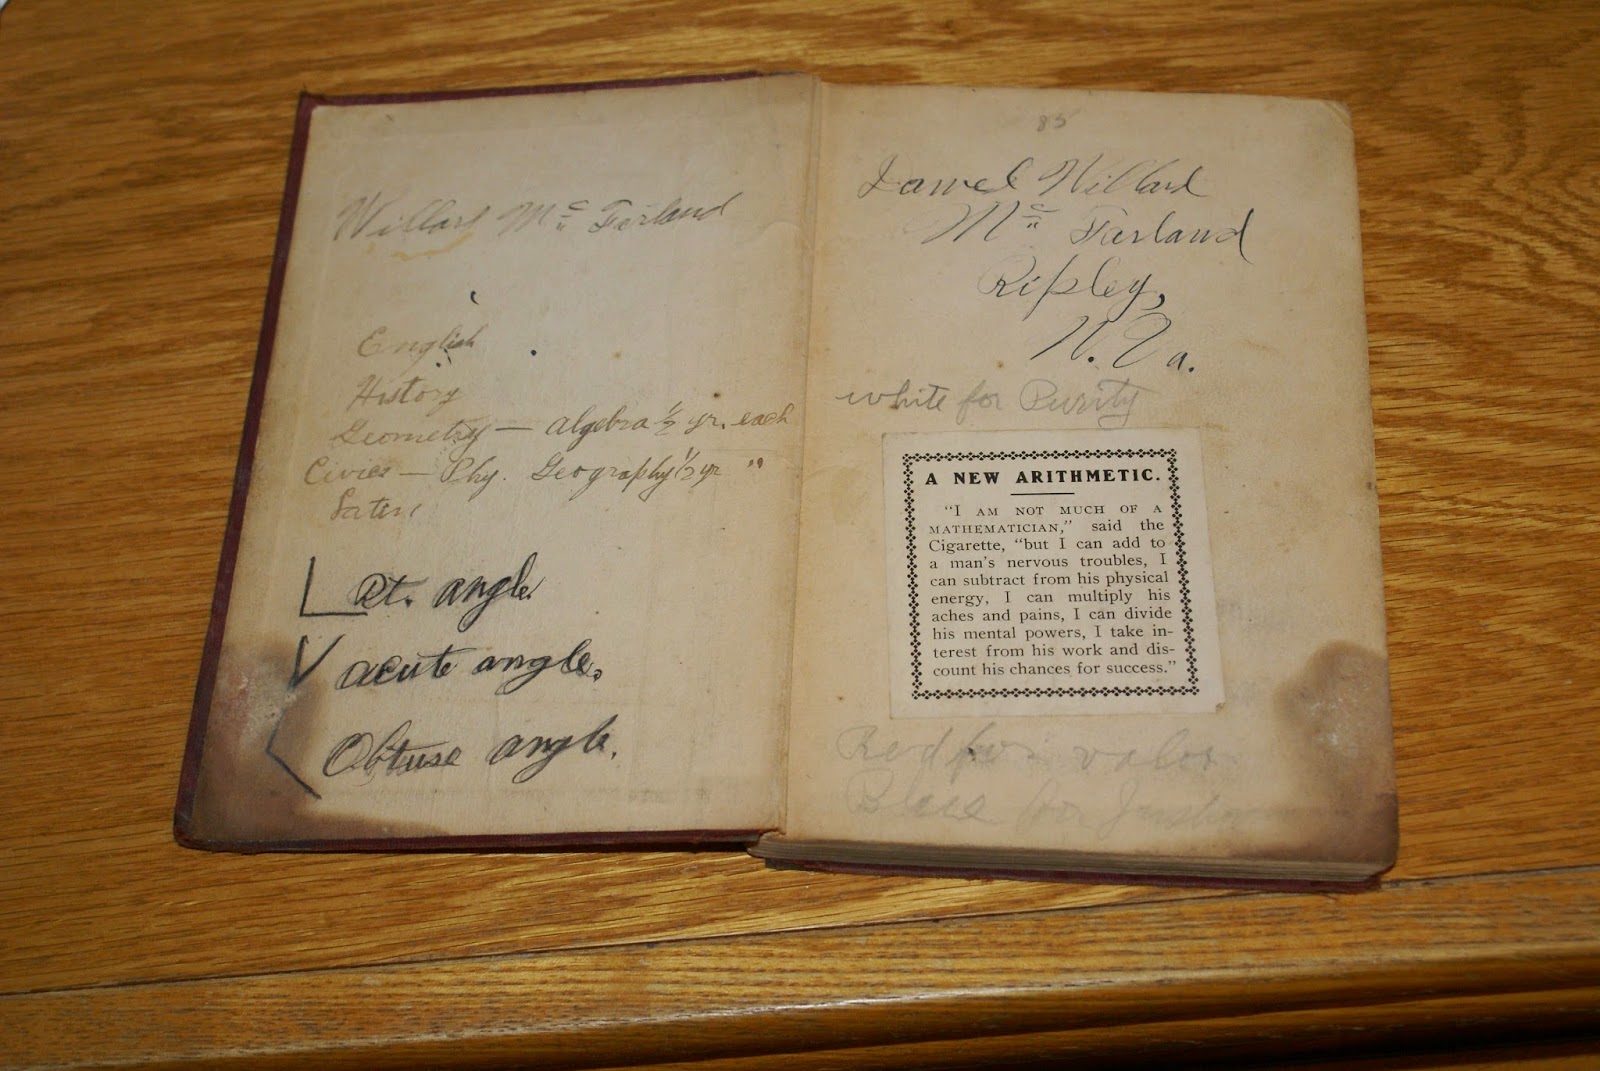 Willard Mc Farland
English
History
Geometry — algebra ½ yr. each
Civics — Phy. Geography ½ yr "
Latin
Rt. angle.
acute angle.
Obtuse angle.
85
Daniel Willard
Mc Farland
Ripley,
W. Va.
white for Purity
A NEW ARITHMETIC.
"I AM NOT MUCH OF A
MATHEMATICIAN," said the
Cigarette, "but I can add to
a man's nervous troubles, I
can subtract from his physical
energy, I can multiply his
aches and pains, I can divide
his mental powers, I take in-
terest from his work and dis-
count his chances for success."
Red for valor
Blue for